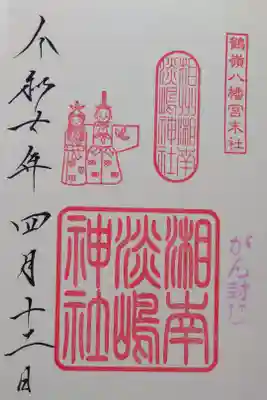 鶴嶺八幡宮末社
相州湘南
淡嶋神社
がん封じ
湘南
淡嶋
神社
令和七年 四月十二日